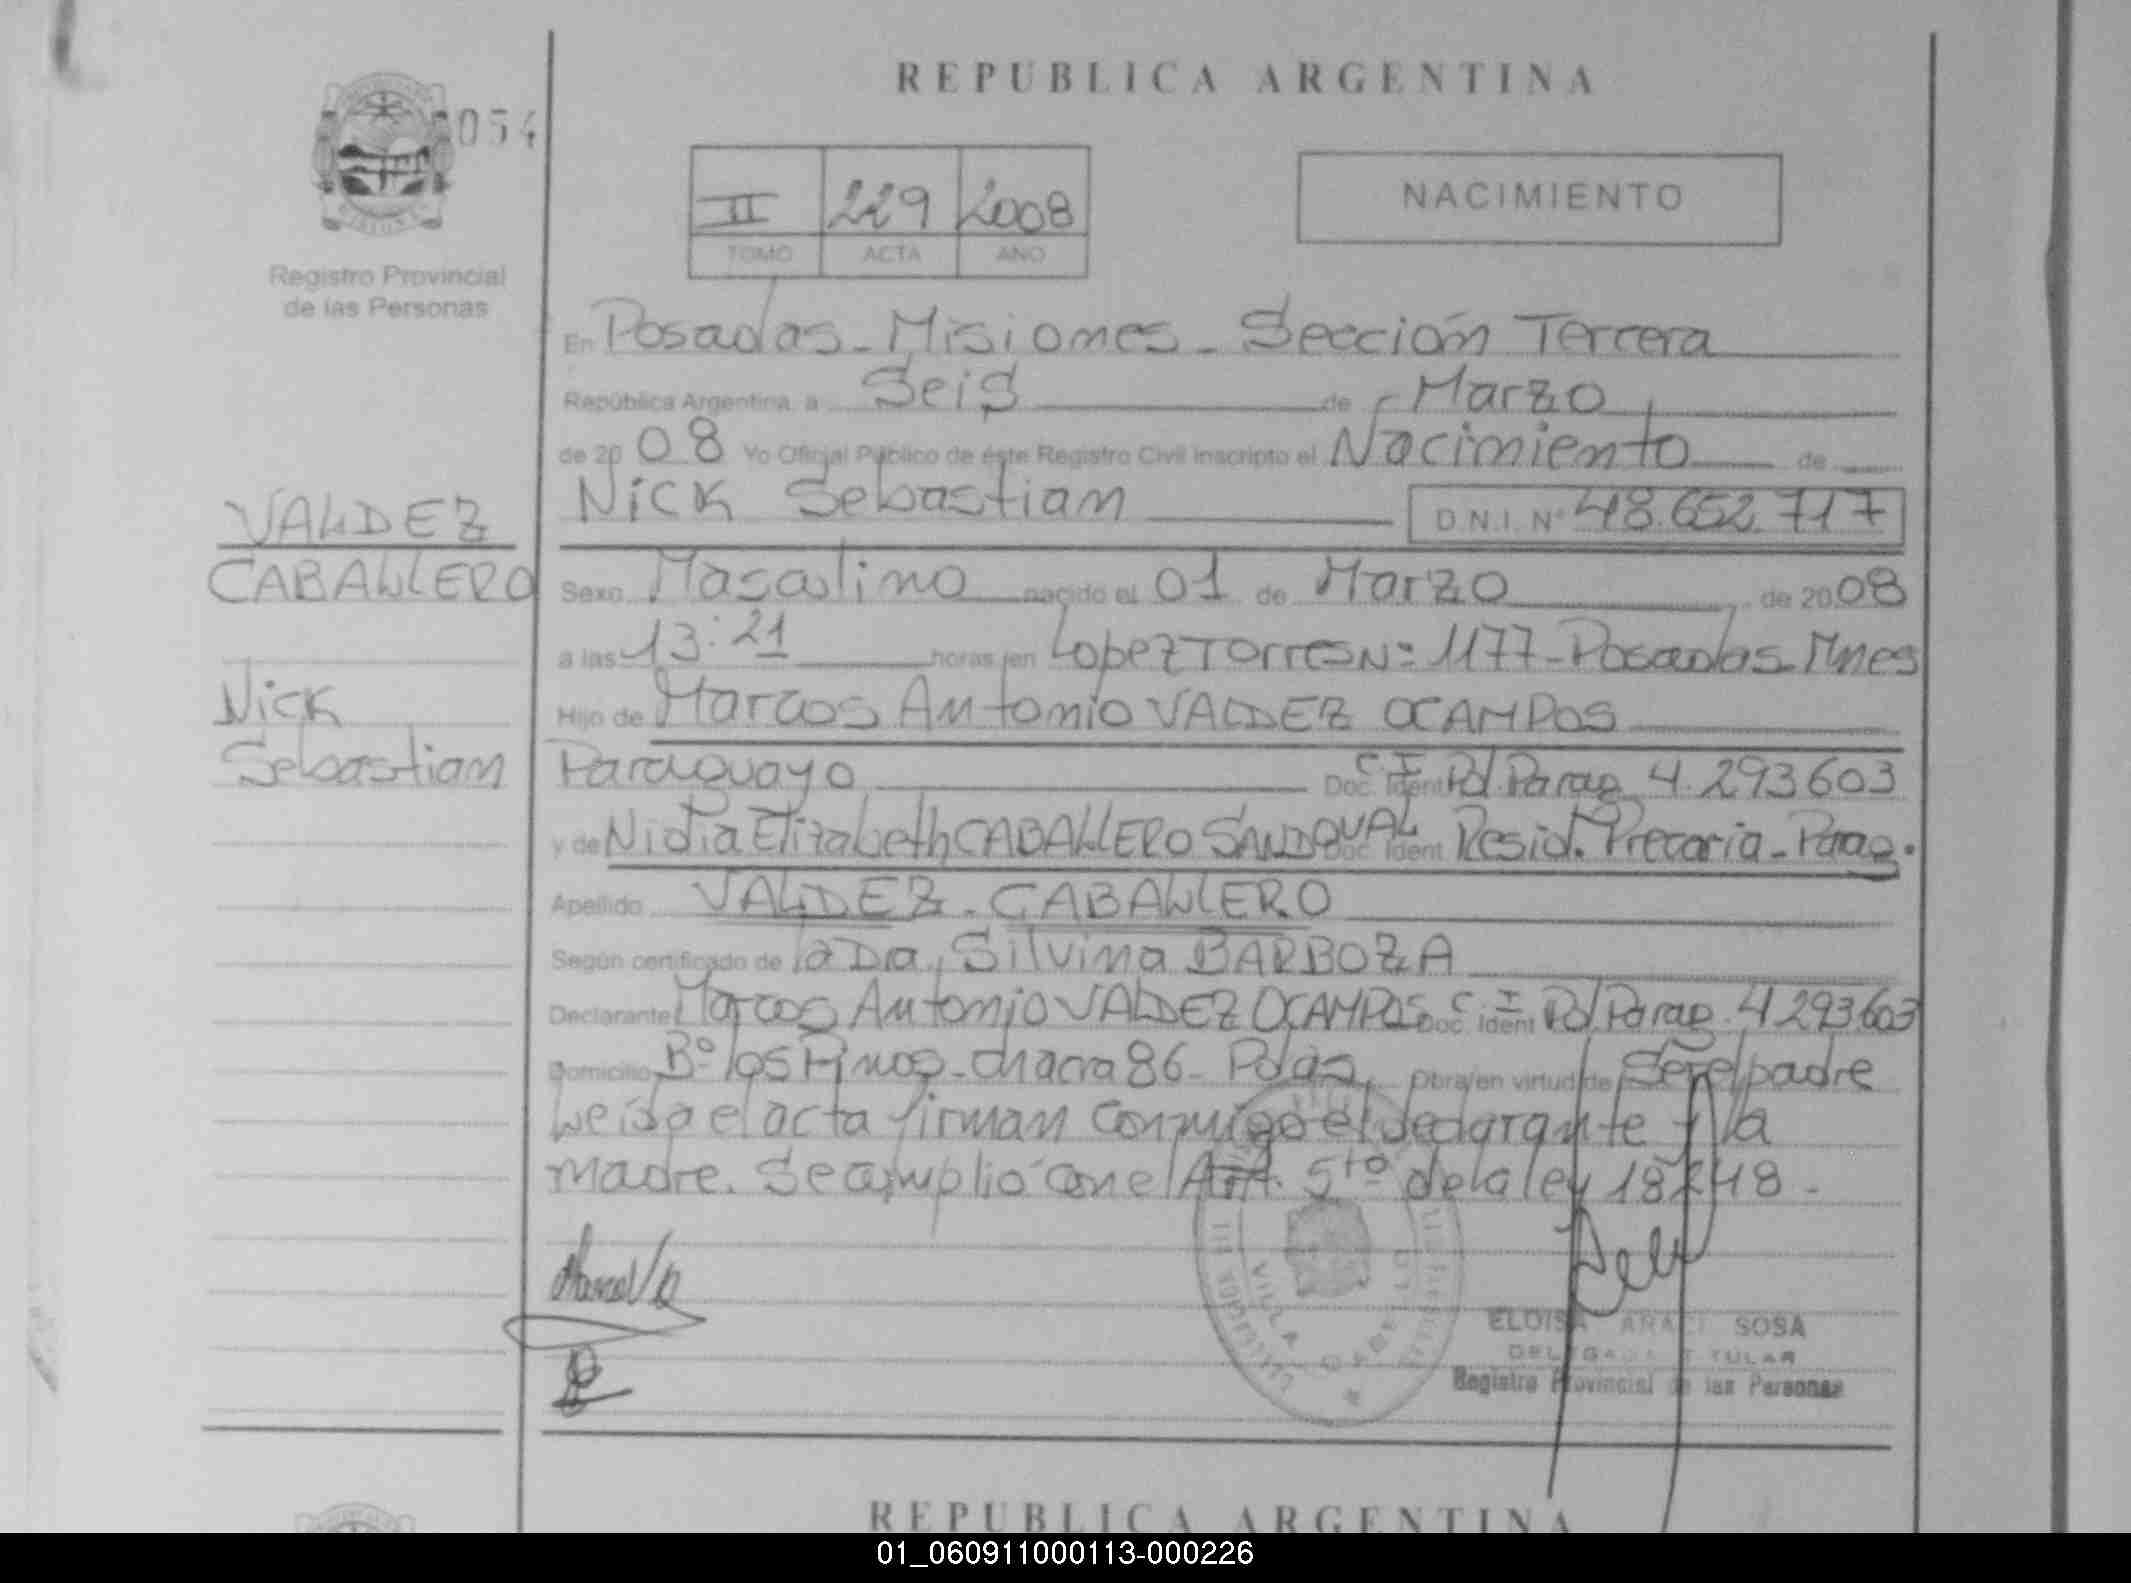 REPUBLICA ARGENTINA
054
II 229 2008
TOMO ACTA AÑO
NACIMIENTO
Registro Provincial
de las Personas
En Posadas - Misiones - Sección Tercera
República Argentina a Seis de Marzo
de 2008 Yo Oficial Público de éste Registro Civil inscripto el Nacimiento de
Nick Sebastian D.N.I. Nº 48.652.717
VALDEZ
CABALLERO
Nick
Sebastian
Sexo Masculino nacido el 01 de Marzo de 2008
a las 13:21 horas en Lopez Torres Nº 1177 - Posadas - Mnes
Hijo de Marcos Antonio VALDEZ OCAMPOS
Paraguayo Doc. Ident. C.I. Pol. Parag. 4.293603
y de Nidia Elizabeth CABALLERO SANDOVAL Doc. Ident. Resid. Precaria - Parag.
Apellido VALDEZ - CABALLERO
Según certificado de la Dra. Silvina BARBOZA
Declarante Marcos Antonio VALDEZ OCAMPOS Doc. Ident. C.I. Pol. Parag. 4293603
Domicilio Bº los Pinos - chacra 86 - Pdas. Obra en virtud de Ser el padre
Leida el acta firman conmigo el declarante y la
madre. Se amplio con el Art. 5to de la ley 18248 -
VILLA CABELLO
ELOISA ARACI SOSA
DELEGADA TITULAR
Registro Provincial de las Personas
REPUBLICA ARGENTINA
01_060911000113-000226